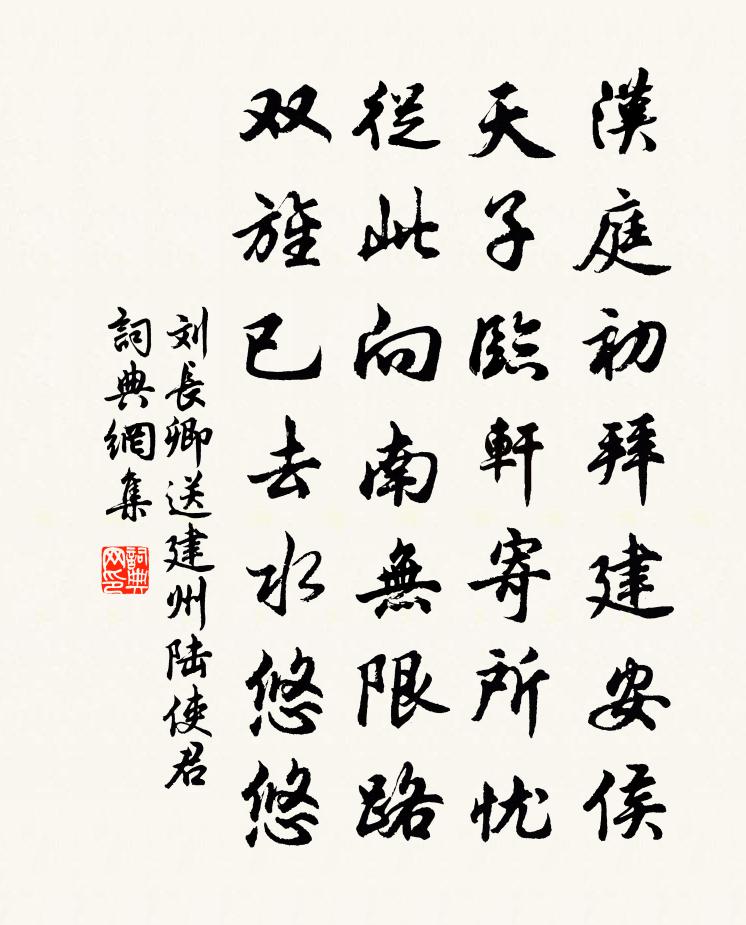 漢庭初拜建安侯
天子臨軒寄所忧
從此向南無限路
双旌已去水悠悠
刘長卿送建州陆使君
詞典網集
詞典网印